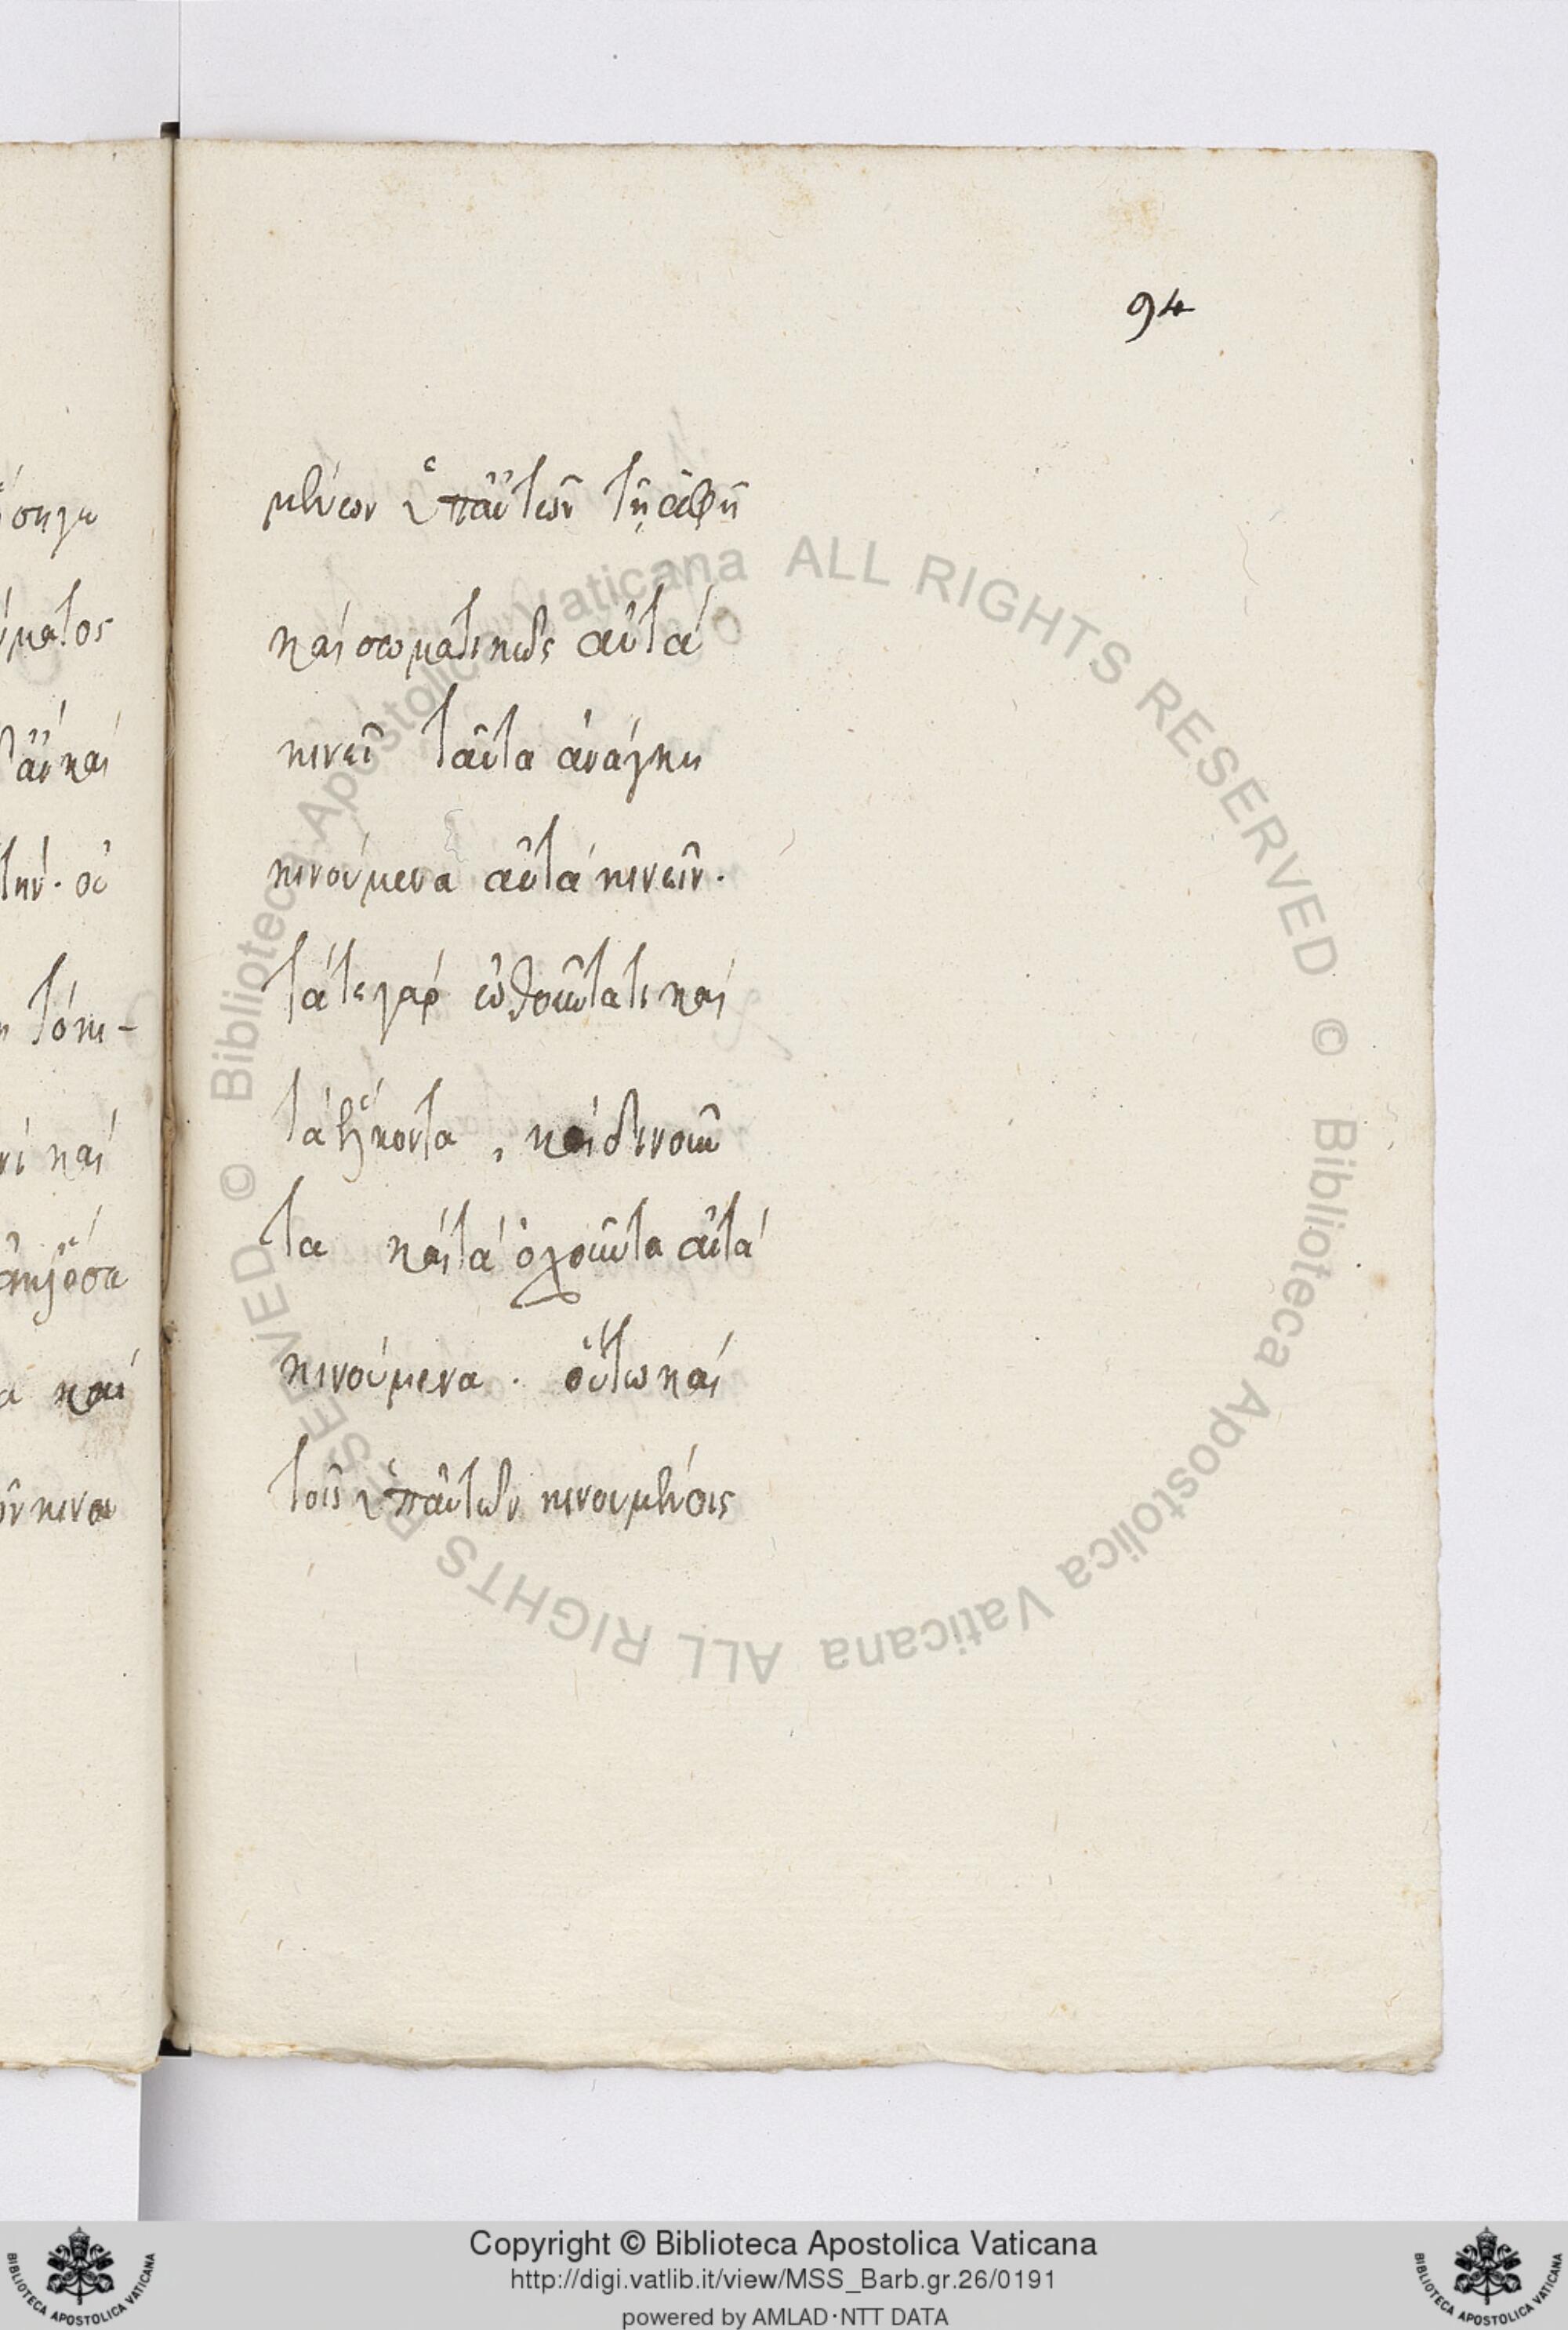 94
μένων ὑπ' αὐτῶν τῇ ἁφῇ
καὶ σωματικῶς αὐτὰ
κινεῖ ταῦτα ἀνάγκη
κινούμενα αὐτὰ κινεῖν.
τά τε γὰρ ὠθοῦντά τι καὶ
τὰ ἕλκοντα, καὶ δινοῦν
τα καὶ τὰ ὀχοῦντα αὐτὰ
κινούμενα. οὕτω καὶ
τοῖς ὑπ' αὐτῶν κινουμένοις
Copyright © Biblioteca Apostolica Vaticana
http://digi.vatlib.it/view/MSS_Barb.gr.26/0191
powered by AMLAD·NTT DATA
© Biblioteca Apostolica Vaticana ALL RIGHTS RESERVED
© Biblioteca Apostolica Vaticana ALL RIGHTS RESERVED
BIBLIOTECA APOSTOLICA VATICANA
BIBLIOTECA APOSTOLICA VATICANA